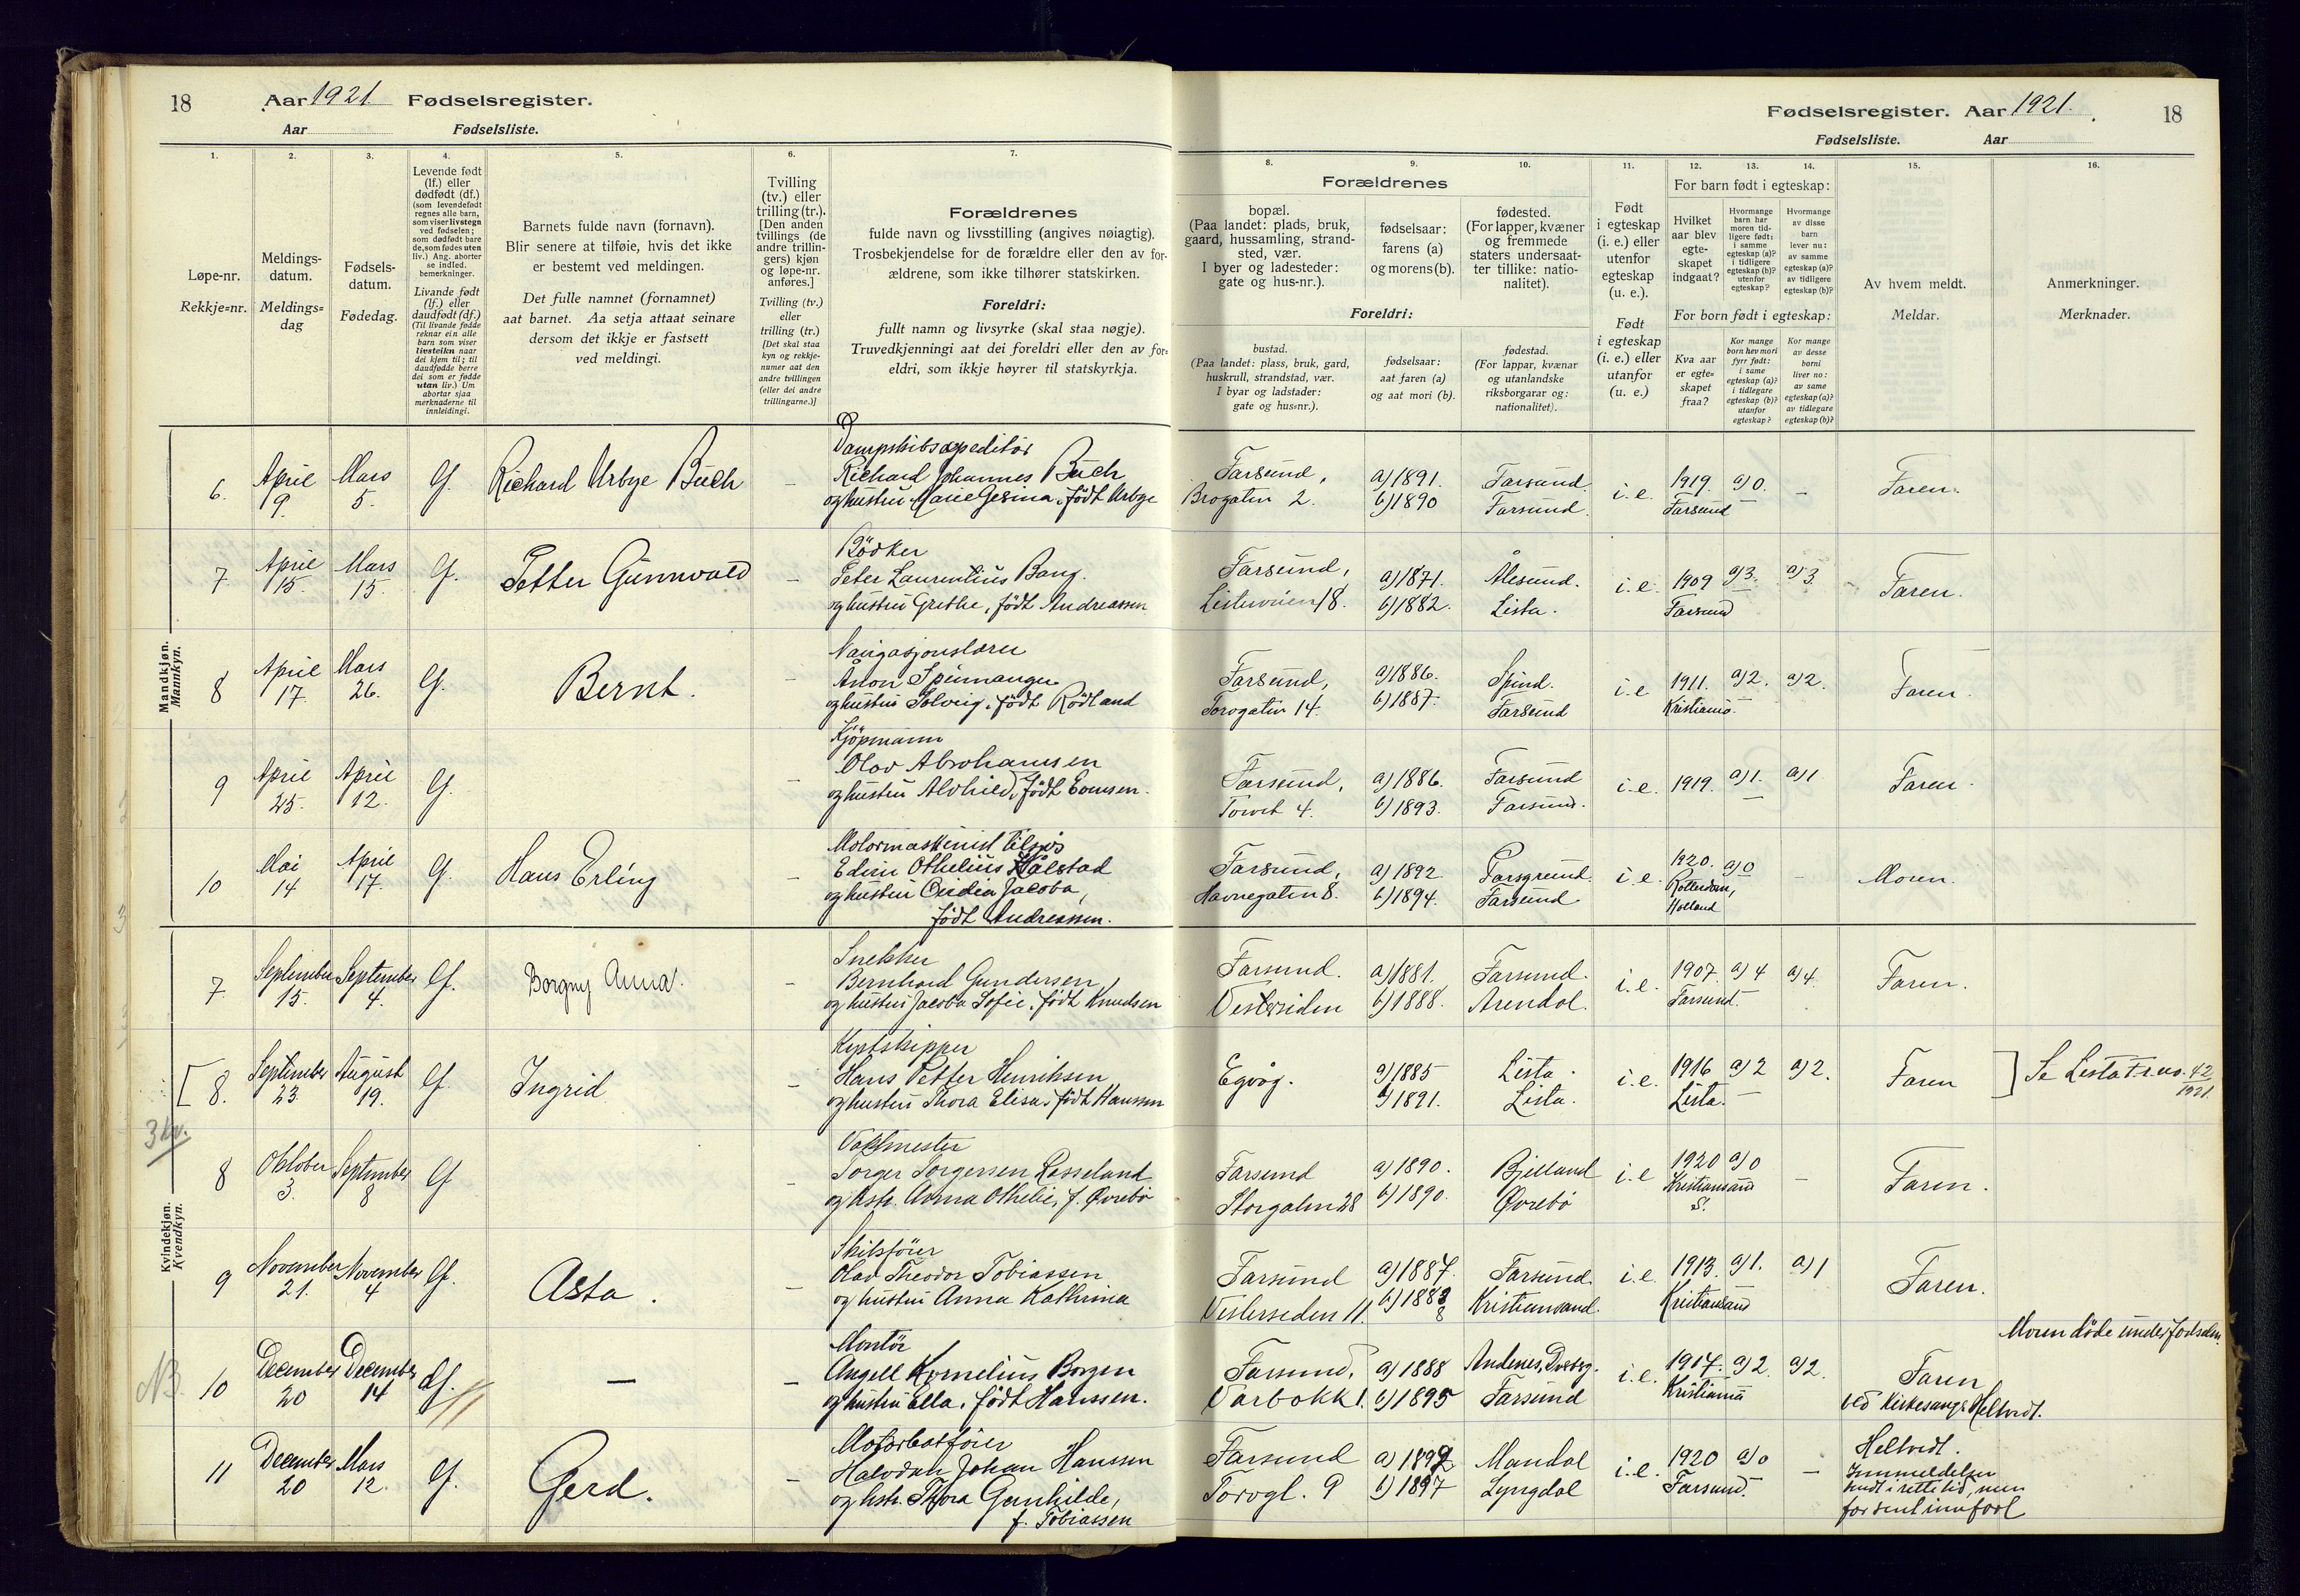 18
Aar 1921 Fødselsregister.
Aar Fødselsliste.
Fødselsregister. Aar 1921.
18
Fødselsliste. Aar
1.
Løpe-nr.
Rekkje=nr.
2.
Meldings-
datum.
Meldings=
dag
3.
Fødsels-
datum.
Fødedag.
4.
Levende født
(lf.) eller
dødfødt (df.)
(som levendefødt
regnes alle barn,
som viser livstegn
ved fødselen;
som dødfødt bare
de, som fødes uten
liv.) Ang. aborter
se indled.
bemerkninger.
Livande født
(lf.) eller
daudfødt (df.)
(Til livande fødde
reknar ein alle
barn som viser
livsteikn naar
dei kjem til; til
daudfødde berre
dei som er fødde
utan liv.) Um
abortar sjaa
merknaderne til
innleidingi.
5.
Barnets fulde navn (fornavn).
Blir senere at tilføie, hvis det ikke
er bestemt ved meldingen.
Det fulle namnet (fornamnet)
aat barnet. Aa setja attaat seinare
dersom det ikkje er fastsett
ved meldingi.
6.
Tvilling
(tv.) eller
trilling (tr.).
[Den anden
tvillings (de
andre trillin-
gers) kjøn
og løpe-nr.
anføres.]
Tvilling (tv.)
eller
trilling (tr.)
[Det skal staa
kyn og rekkje-
numer aat den
andre tvillingen
(eller dei andre
trillingarne.)]
7.
Forældrenes
fulde navn og livsstilling (angives nøiagtig).
Trosbekjendelse for de forældre eller den av for-
ældrene, som ikke tilhører statskirken.
Foreldri:
fullt namn og livsyrke (skal staa nøgje).
Truvedkjenningi aat dei foreldri eller den av for=
eldri, som ikkje høyrer til statskyrkja.
Forældrenes
8.
bopæl.
(Paa landet: plads, bruk,
gaard, hussamling, strand-
sted, vær.
I byer og ladesteder:
gate og hus-nr.).
9.
fødselsaar:
farens (a)
og morens (b).
10.
fødested.
(For lapper, kvæner
og fremmede
staters undersaat-
ter tillike: natio-
nalitet).
Foreldri:
bustad.
(Paa landet: plass, bruk, gard,
huskrull, strandstad, vær.
I byar og ladstader:
gate og hus=nr.).
fødselsaar:
aat faren (a)
og aat mori (b).
fødestad.
(For lappar, kvænar
og utanlandske
riksborgarar og:
nationalitet).
11.
Født
i egteskap
(i. e.) eller
utenfor
egteskap
(u. e.).
Født
i egteskap
(i. e.) eller
utanfor
(u. e.)
For barn født i egteskap:
12.
Hvilket
aar blev
egte-
skapet
indgaat?
13.
Hvormange
barn har
moren tid-
ligere født:
i samme
egteskap (a)?
i tidligere
egteskap (b)?
utenfor
egteskap?
14.
Hvormange
av disse
barn
lever nu:
av samme
egteskap (a)?
av tidligere
egteskap (b)?
For born født i egteskap:
Kva aar
er egte=
skapet
fraa?
Kor mange
born hev mori
fyrr født:
i same
egteskap (a)?
i tidlegare
egteskap (b)?
utanfor
egteskap?
Kor mange
av desse
borni
liver no:
av same
egteskap (a)?
av tidlegare
egteskap (b)?
15.
Av hvem meldt.
Meldar.
16.
Anmerkninger.
Merknader.
Mandkjøn.
Mannkyn.
6. April 9. Mars 5. lf. Richard Urbye Buch –
Dampskibsexpeditør
Richard Johannes Buch
og hustru Marie Gesina, født Urbye
Farsund, Brogaten 2.
a) 1891. b) 1890
Farsund. Farsund.
i.e. 1919. Farsund a) 0. – Faren.
7. April 15. Mars 15. lf. Petter Gunnvald –
Bødker
Peter Laurentius Bang.
og hustru Grethe, født Andreassen
Farsund, Listerveien 18.
a) 1871. b) 1882.
Ålesund. Lista.
i.e. 1909 Farsund a) 3. a) 3 Faren.
8 April 17. Mars 26. lf. Bernt. –
Navigasjonslærer
Anon Spinnanger
og hustru Solveig, født Rödland
Farsund, Torvgaten 14.
a) 1886. b) 1887.
Spind. Farsund
i.e 1911. Kristiania. a) 2. a) 2. Faren.
9 April 25. April 12. lf. –
Kjöpmann
Olav Abrahamsen
og hustru Alvhild, født Evensen.
Farsund, Torvet 4.
a) 1886. b) 1893.
Farsund Farsund.
i.e. 1919. a) 1. a) 1 Faren.
10 Mai 14 April 17. lf. Hans Erling –
Motormaskinist tilsjøs
Edvin Othelius Hålstad
og hustru Ovidia Jacoba,
født Andreassen.
Farsund, Havnegaten 8.
a) 1892. b) 1894.
Porsgrund. Farsund
i.e. 1920. Rotterdam, Holland a) 0 – Moren.
Kvindekjøn.
Kvendkyn.
7. September 15. September 4. lf. Borgny Anna. –
Snekker
Bernhard Gundersen
og hustru Jacoba Sofie, født Knudsen
Farsund. Vestersiden
a) 1881. b) 1888.
Farsund. Arendal.
i.e. 1907. Farsund. a) 4 a) 4. Faren.
[8. September 23. August 19. lf. Ingrid –
Kystskipper
Hans Petter Henriksen
og hustru Thora Elisa, født Hanssen
Egvåg.
a) 1885 b) 1891.
Lista. Lista.
i.e. 1916 Lista. a) 2 a) 2. Faren ] Se Lista Fr. no. 42
1921.
3 kv.
8 Oktober 3. September 8 lf –
Vaktmester
Torger Torgersen Lesseland
og hstr. Anna Othelie, f. Øvrebö
Farsund Storgaten 28
a) 1890. b) 1890.
Bjelland Øvrebö
i.e 1920 Kristiansand S. a) 0 – Faren.
9 November 21. November 4 lf. Asta. –
Skibsförer
Olav Theodor Tobiassen
og hustru Anna Kathrina
Farsund Vestersiden 11.
a) 1887. b) 1883 8
Farsund. Kristiansand.
i.e. 1913. Kristiansand a) 1. a) 1 Faren.
NB. 10 December 20 December 14 df. – –
Montör
Angell Kornelius Borgen
og hustru Ella, født Hanssen.
Farsund, Varbakk 1.
a) 1888 b) 1895
Andenes, Farsund
i.e. 1914. Kristiania a) 2. a) 2. Faren
ved Kirkesanger Heltvedt.
Moren döde under fødselen.
11 December 20 Mars 12. lf. Gerd. –
Motorbaatförer
Halvdan Johan Hanssen
og hstr. Thora Gunhilde,
f. Tobiassen
Farsund Torvgt. 9
a) 1892 b) 1897
Mandal Lyngdal
i.e. 1920 Farsund. a) 0 –
Heltvedt.
Innmeldelsen
sendt i rette tid, men
for sent innført